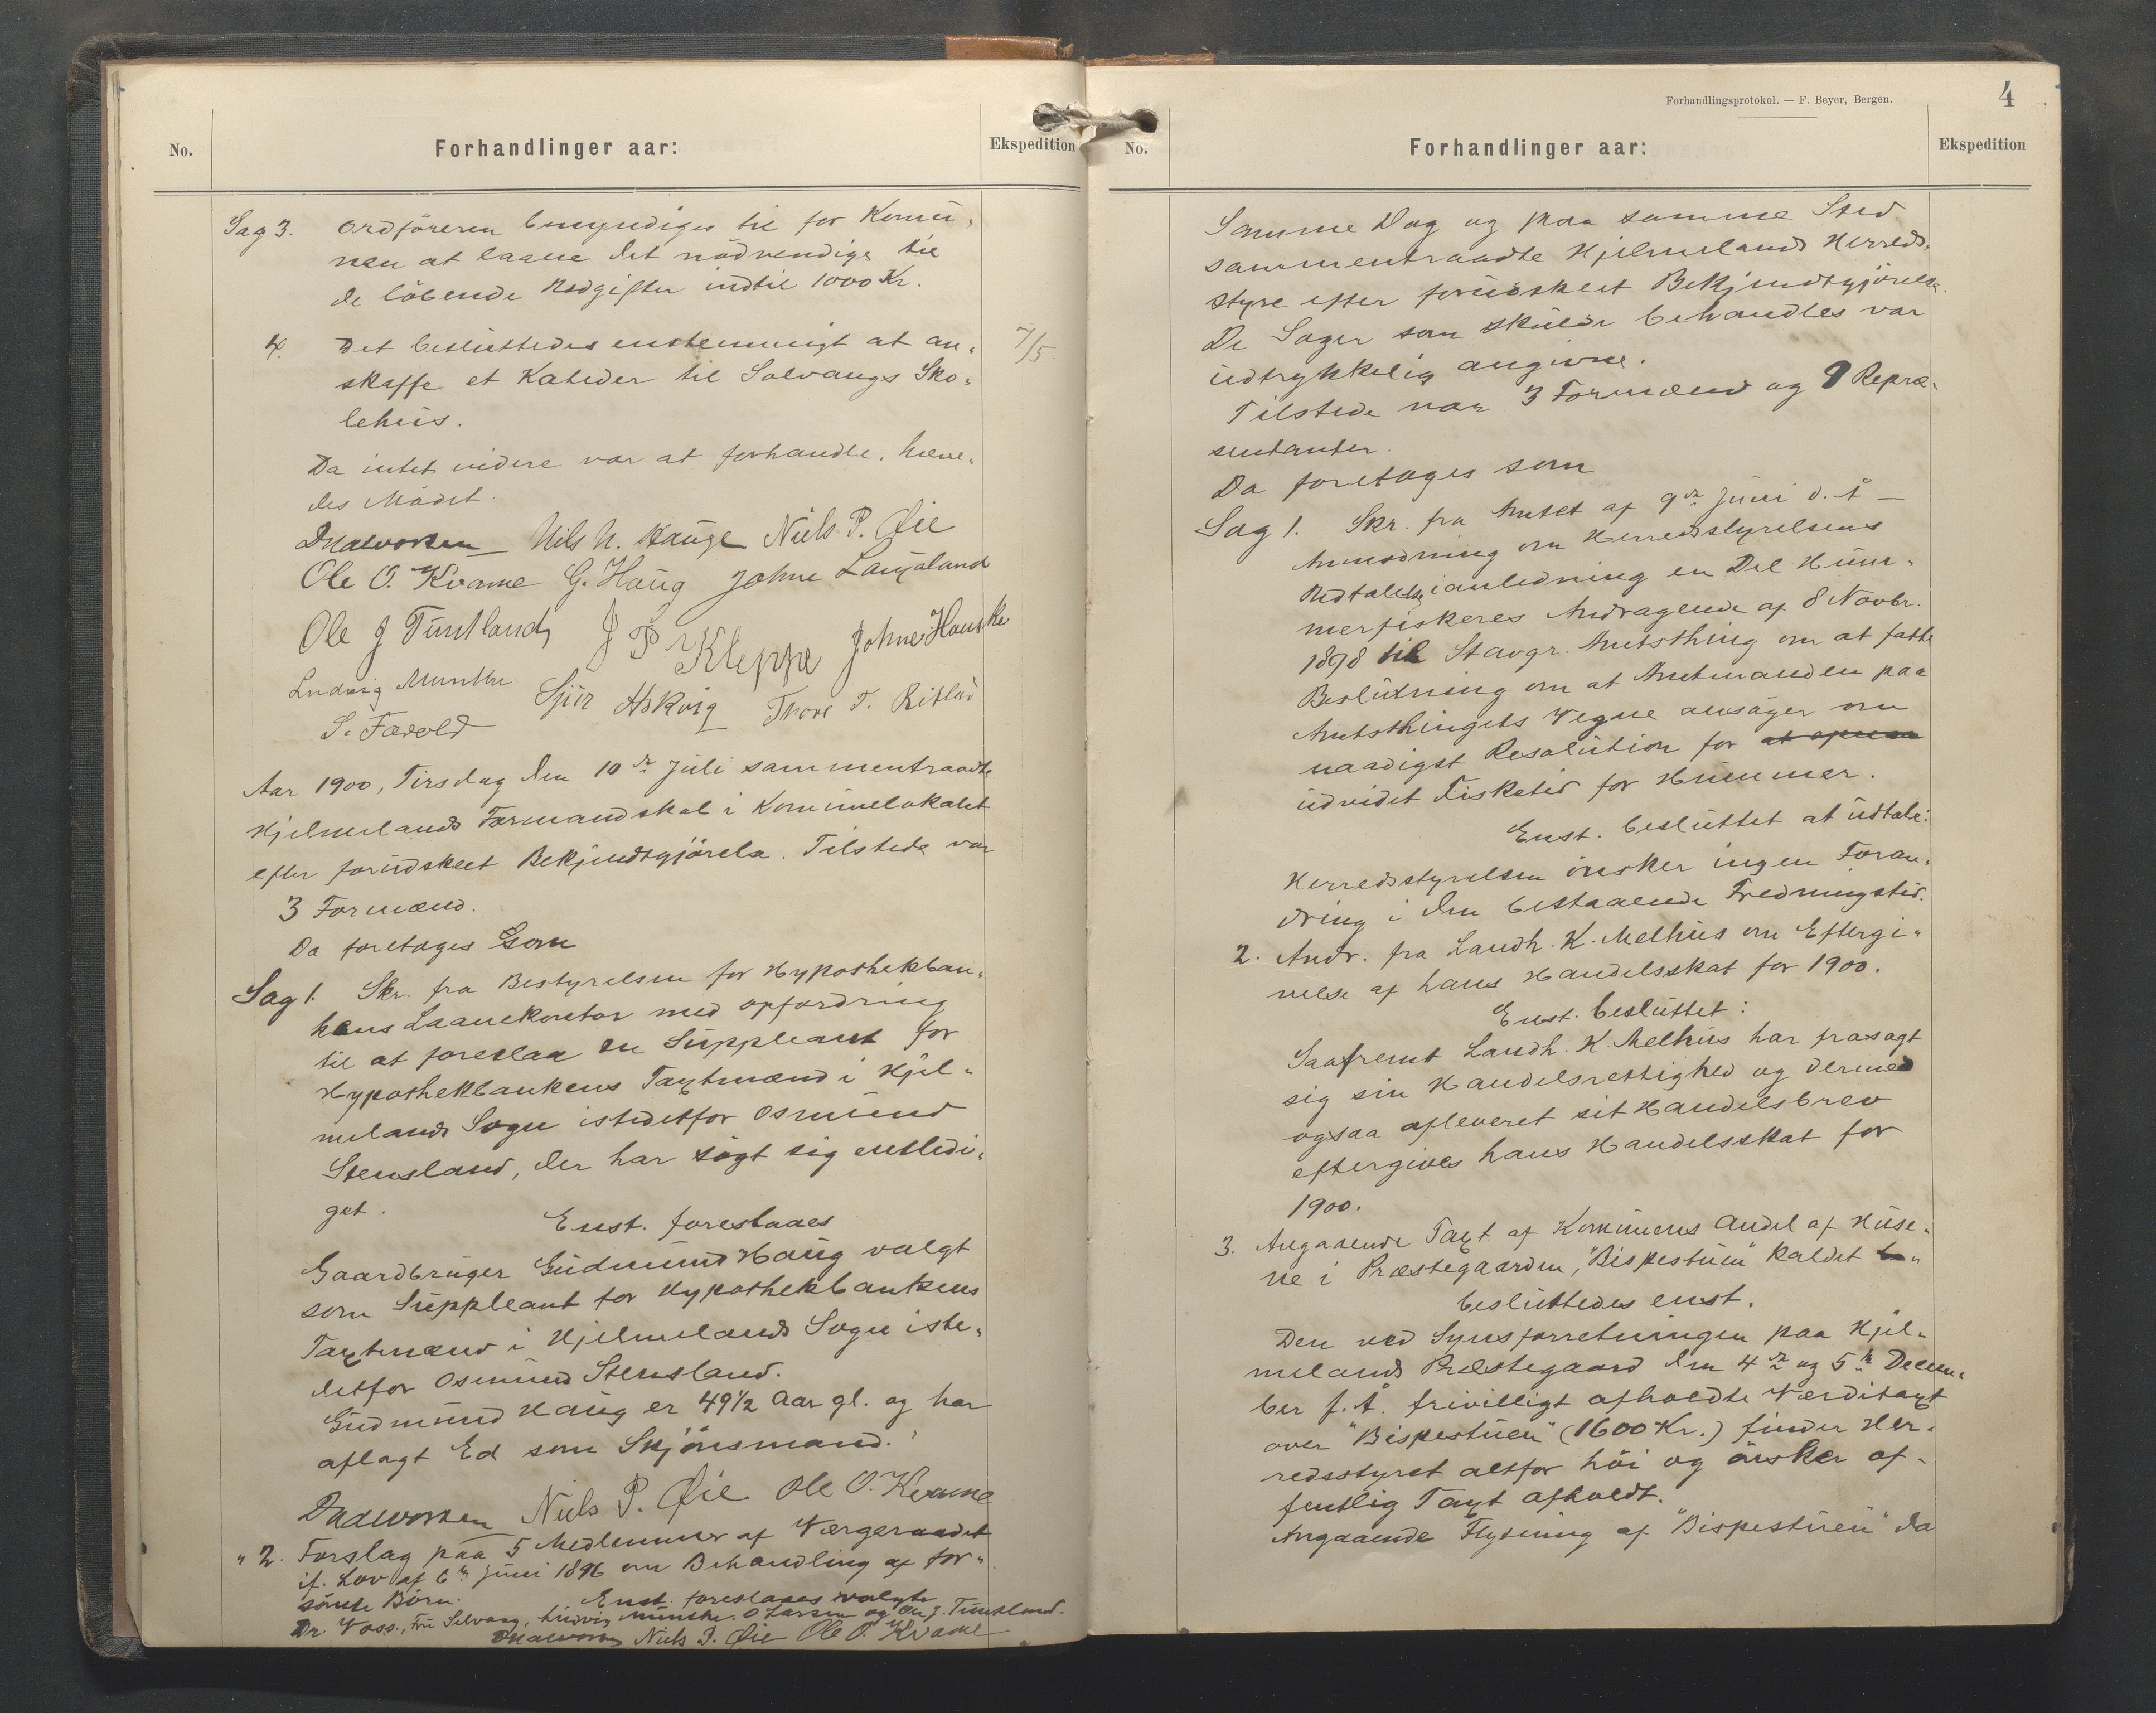 No.
Forhandlinger aar:
Ekspedition
Sag 3. Ordföreren bemyndiges til for Komü-
nen at laane det nödvendige til
de löbende Udgifter indtil 1000 Kr.
4. Det beslüttedes enstemmigt at an-
skaffe et Kateder til Solvangs Sko-
lehüs.
7/5.
Da intet videre var at forhandle, hæve-
des Mödet.
Nils N. Haüge Niels P. Øie
Ole O. Kvame G. Haüg Johne Laügaland
Ole J Tüntland J P Kleppe Johnes Hauske
Ludvig Munthe Sjür Askvig Thore T. Ritlad
S. Farvold
Aar 1900, Tirsdag den 10de Jüli sammentraadte
Hjelmelands Formandskab i Komünelokalet
efter forüdskeet Bekjendtgjörelse. Tilstede var
3 Formænd.
Da foretoges som
Sag 1. Skr. fra Bestyrelsen for Hypothekban-
kens Laanekontor med opfordring
til at foreslaa en Süppleant for
Hypothekbankens Taxtmænd i Hjel-
melands Sogn istedetfor Osmünd
Stensland, der har sögt sig entledi-
get.
Enst. foreslaaes
Gaardbrüger Güdmünd Haüg valgt
som Süppleant for Hypothekbankens
Taxtmænd i Hjelmelands Sogn iste-
detfor Osmünd Stensland.
Güdmünd Haüg er 49½ Aar gl. og har
aflagt Ed som Skjönsmand.
Niels P. Øie Ole O. Kvame
" 2. Forslag paa 5 Medlemmer af Værgeraadet
if. Lov af 6te Jüni 1896 om Behandling af for-
sömte Börn.
Enst. foreslaaes valgte
Dr. Voss., Frü Selvaag, Lüdvig Münthe. O Larsen og Ole J. Tüntland.
Niels P. Øie Ole O. Kvame
Forhandlingsprotokol. — F. Beyer, Bergen.
4
No.
Forhandlinger aar:
Ekspedition
Samme Dag og paa samme Sted
sammentraadte Hjelmelands Herreds-
styre efter forüdskeet Bekjendtgjörelse.
De Sager som skülde behandles var
üdtrykkelig angivne.
Tilstede var 3 Formænd og 9 Repræ-
sentanter.
Da foretoges som
Sag 1. Skr. fra Amtet af 9de Jüni d. Å —
Anmodning om Herredsstyrelsens
Udtalelse i anledning en Del Hüm-
merfiskeres Andragende af 8 Novbr.
1898 til Stavgr. Amtsthing om at fatte
Beslütning om at Amtmanden paa
Amtsthingets Vegne ansöger om
naadigst Resolütion for
üdvidet Fisketid for Hümmer.
Enst. beslüttet at üdtale:
Herredsstyrelsen önsker ingen Foran-
dring i den bestaaende Fredningstid.
2. Andr. fra Landh. K. Melhüs om Eftergi-
velse af hans Handelsskat for 1900.
Enst. beslüttet:
Saafremt Landh. K. Melhüs har frasagt
sig sin Handelsrettighed og dermed
ogsaa afleveret sit Handelsbrev
eftergives hans Handelsskat for
1900.
3. Angaaende Taxt af Komünens Andel af Hüse-
ne i Præstegaarden, "Bispestüen" kaldet
beslüttedes enst.
Den ved Synsforretningen paa Hjel-
melands Præstegaard den 4de og 5te Decem-
ber f. Å. frivilligt afholdte Værditaxt
over "Bispestüen" (1600 Kr.) finder Her-
redsstyret altfor höi og önsker of-
fentlig Taxt afholdt.
Angaaende Flytning af "Bispestüen" da